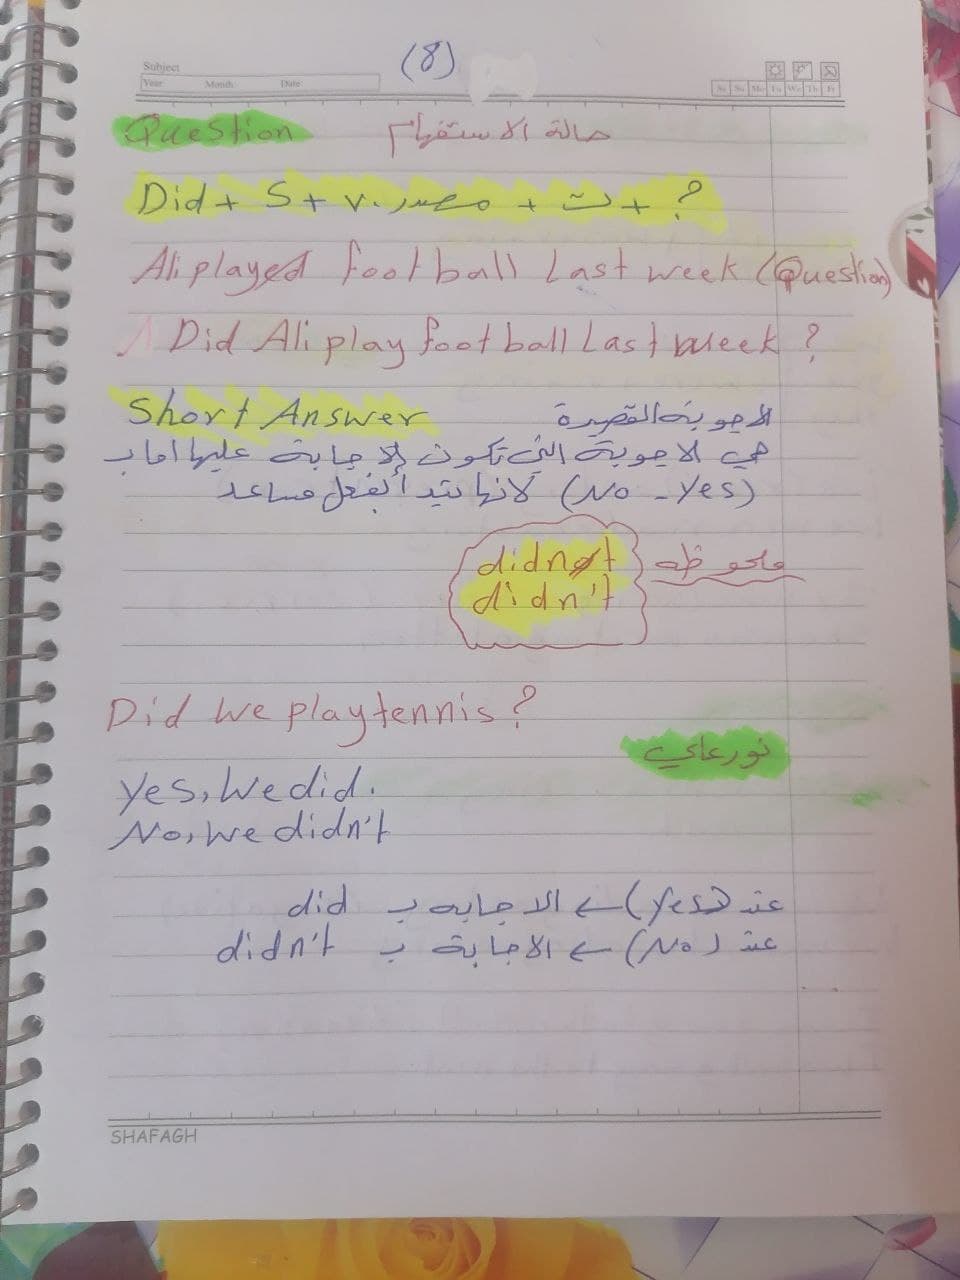 (8)
Subject
Year: Month: Date:
Sa Su Mo Tu We Th Fr
Question حالة الاستفهام
Did + S + v. مصدر + ت + ?
Ali played football Last week (Question)
Did Ali play football Last week ?
Short Answer الاجوبة القصيرة
هي الاجوبة التي تكون الاجابة عليها اما ب
(No - Yes) لانها تبدأ بفعل مساعد
ملحوظه didnot
didn't
Did We play tennis?
نور علي
Yes, We did.
No, We didn't
عند (Yes) ← الاجابه ب did
عند (No) ← الاجابة ب didn't
SHAFAGH